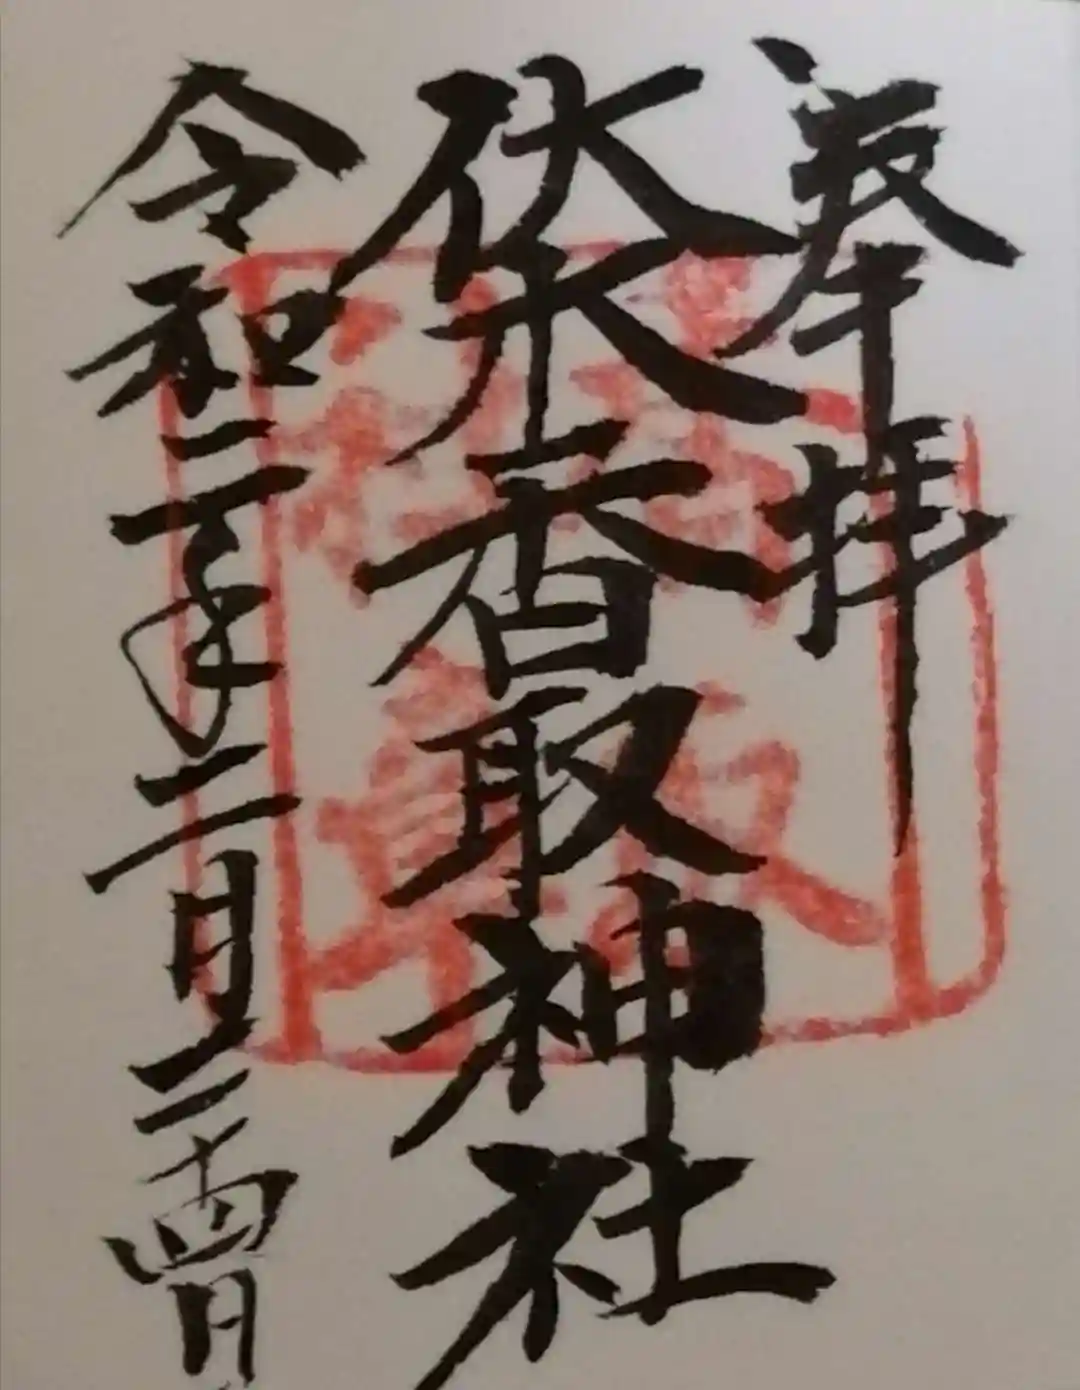 奉拝
伏木香取神社
令和二年二月二十四日